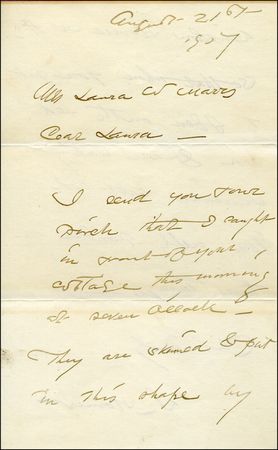 August 21st
1907
Laura W
Dear Laura —
I send you some
perch that I caught
in front of your
cottage this morning
at seven O'clock —
They are skinned & put
in this shape by